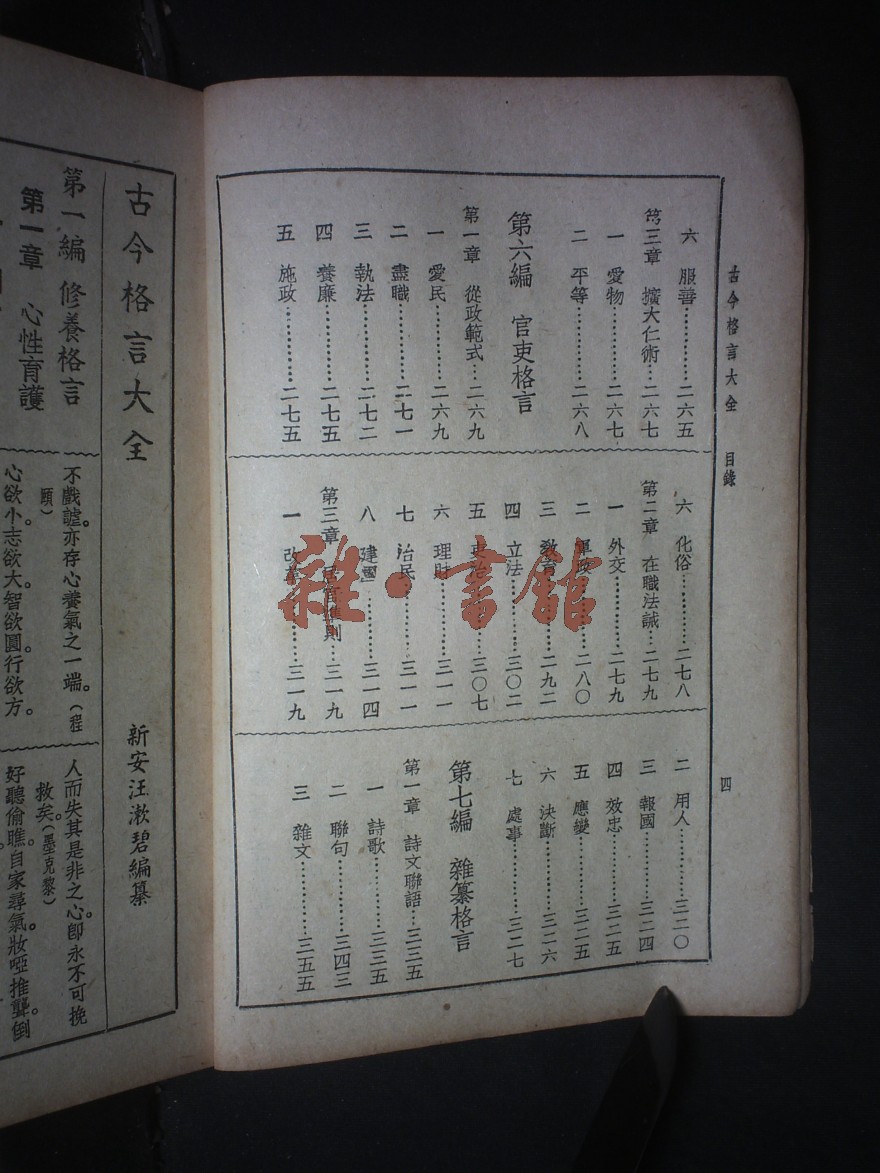 古今格言大全　目錄
四
六　服善…………二六五
第三章　擴大仁術…二六七
一　愛物…………二六七
二　平等…………二六八
第六編　官吏格言
第一章　從政範式…二六九
一　愛民…………二六九
二　盡職…………二七一
三　執法…………二七二
四　養廉…………二七五
五　施政…………二七五
六　化俗…………二七八
第二章　在職法誡…二七九
一　外交…………二七九
二　軍政…………二八〇
三　教育…………二九二
四　立法…………三〇二
五　吏治…………三〇七
六　理財…………三一一
七　治民…………三一一
八　建國…………三一四
第三章　則…三一九
一　改革…………三一九
二　用人…………三二〇
三　報國…………三二四
四　效忠…………三二五
五　應變…………三二五
六　決斷…………三二六
七　處事…………三二七
第七編　雜纂格言
第一章　詩文聯語…三三五
一　詩歌…………三三五
二　聯句…………三四三
三　雜文…………三五五
古今格言大全
新安汪漱碧編纂
第一編　修養格言
第一章　心性育護
不戲謔。亦存心養氣之一端。（程
頤）
心欲小。志欲大。智欲圓。行欲方。
人而失其是非之心。卽永不可挽
救矣。（墨克黎）
好聽偷瞧。自家尋氣。妝啞推聾。倒
雜·書館